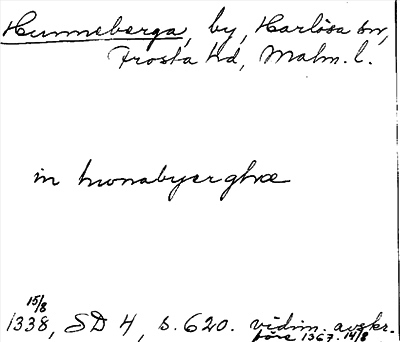 Hunneberga, by, Harlösa sn,
Frosta hd, Malm. l.
in hwnabyerghæ
15/8
1338, SD 4, s. 620. vidim. avskr.
före 1367. 14/8